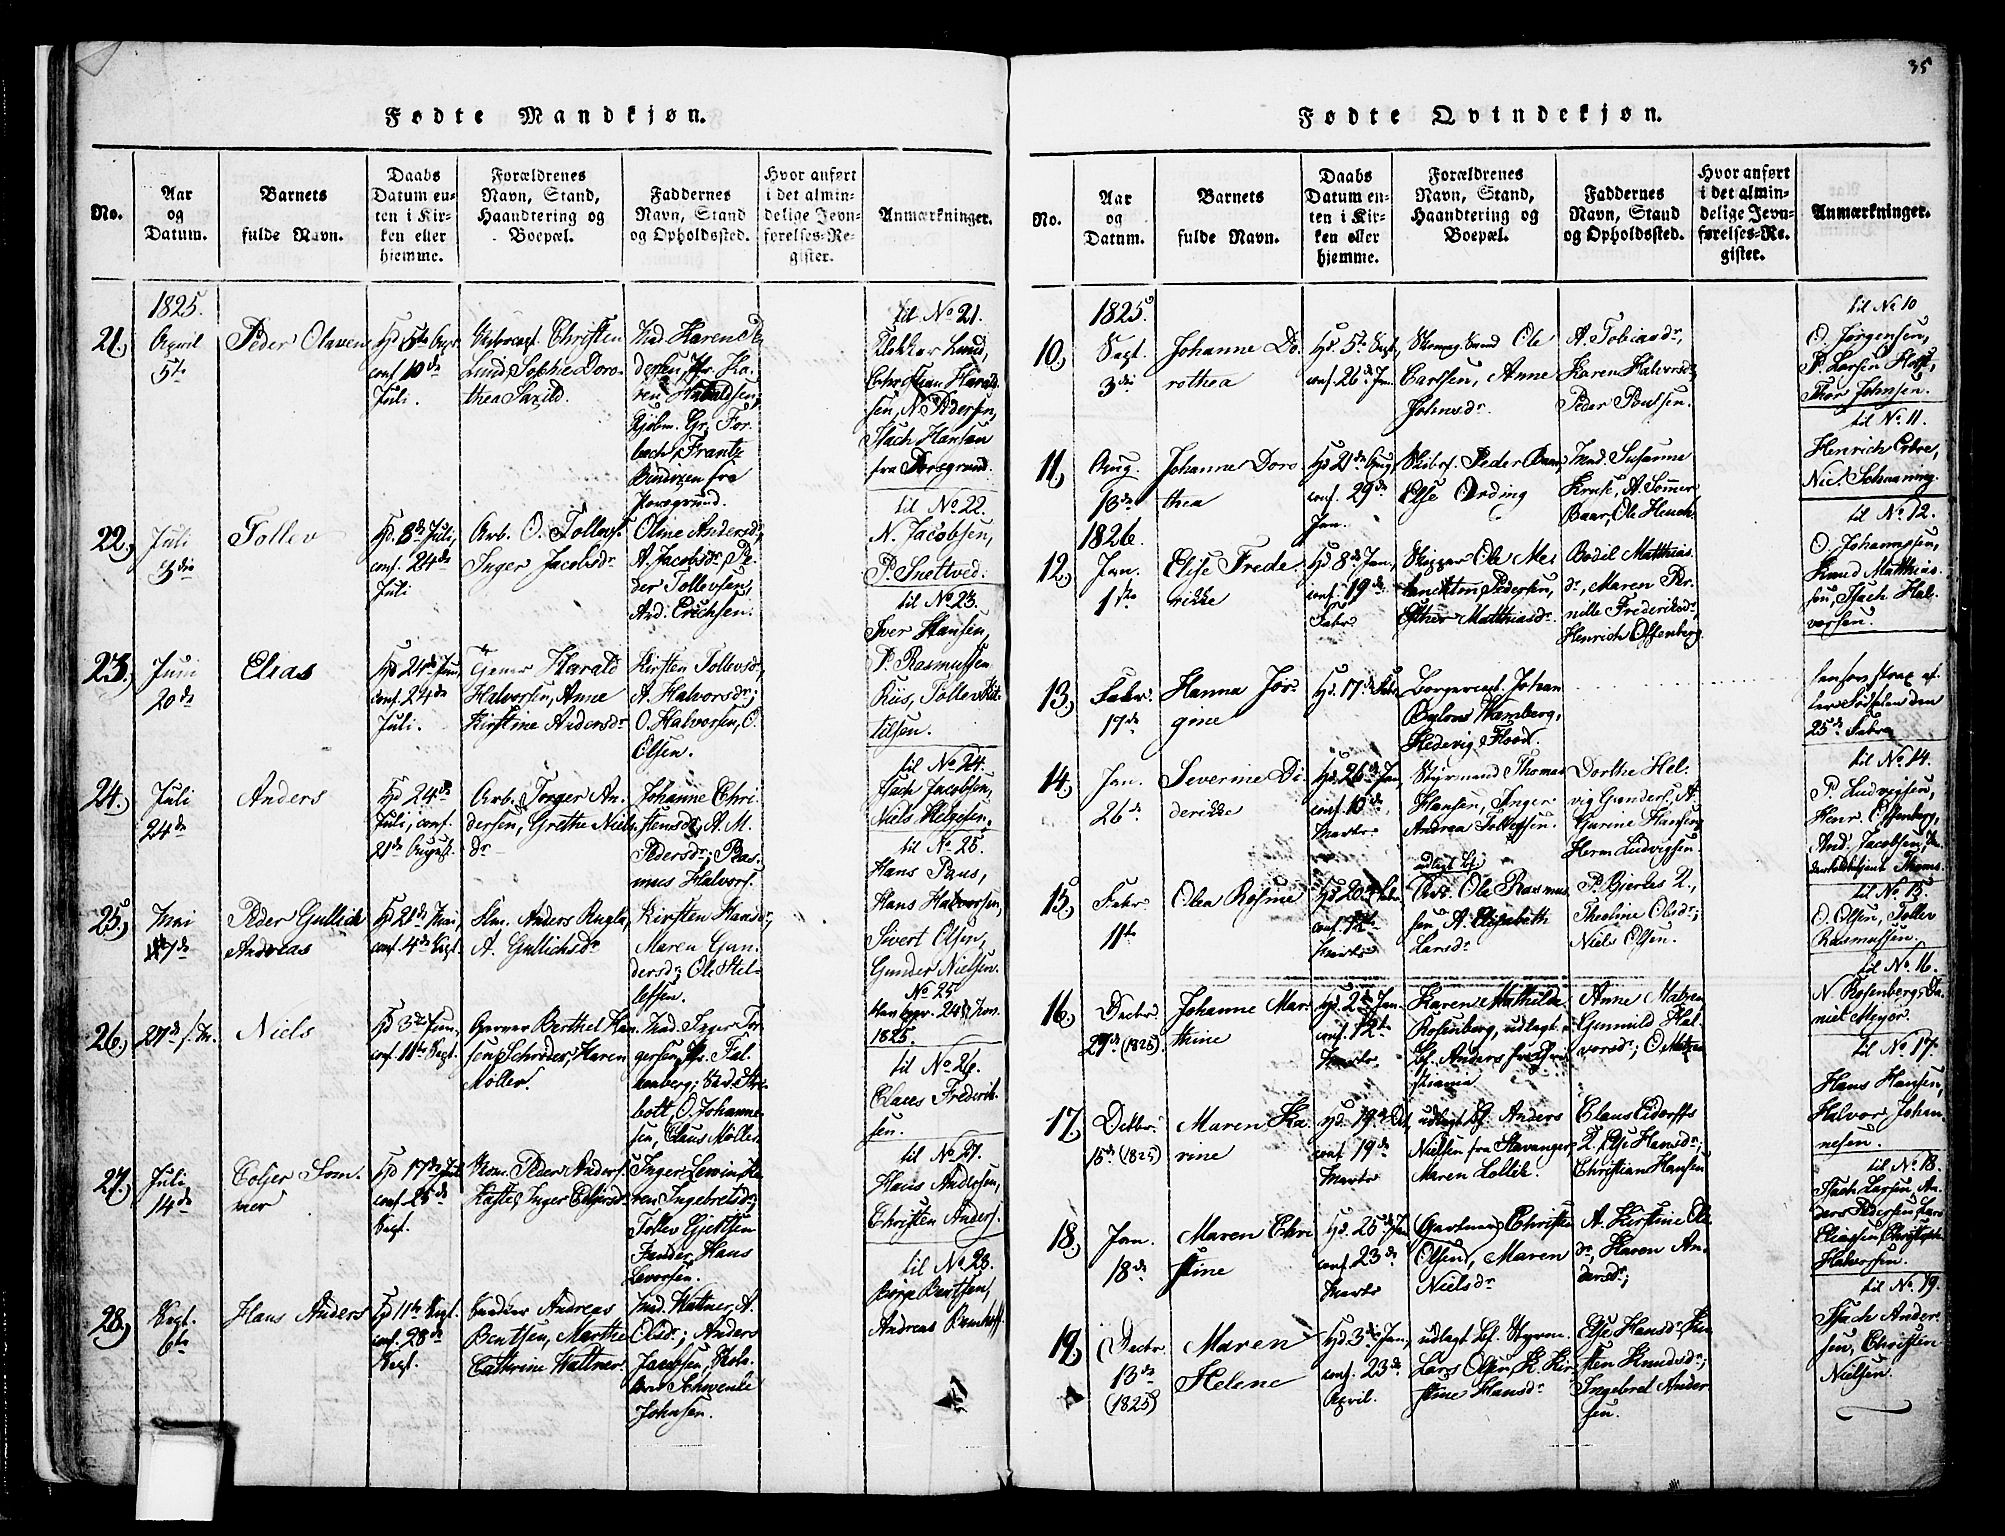 35
Fødte Mandkjøn.
No.
Aar
og
Datum.
Barnets
fulde Navn.
Daabs
Datum en-
ten i Kir-
ken eller
hjemme.
Forældrenes
Navn, Stand,
Haandtering og
Boepæl.
Faddernes
Navn, Stand
og Opholdssted.
Hvor anført
i det almin-
delige Jevn-
førelses-Re-
gister.
Anmærkninger.
1825.
21.)
April
5te
Peder Olaven
conf. 10de
Juli.
Christen
Lund, Sophie Doro-
thea Saxild.
Mad. Karen Pe-
dersen, Jfr. Ka-
ren
Frantz
fra
Porsgrund.
til No 21.
Klokker Lund,
Christian Harald-
sen, N. Pedersen,
Isach Hansen
fra Porsgrund.
22.)
Juli
3die
Tollev
Hd. 8de Juli,
conf. 24de
Juli
Arb. O. Tollevs.
Inger Jacobsdr
Oline Andersdr,
A. Jacobsdr, Pe-
der Tollevsen,
And. Erichsen.
til No 22.
N. Jacobsen,
P. Sneltved.
23.)
Juni
20de
Elias
Hd 24de Juni,
conf. 24de
Juli.
Harald
Halvorsen, Anne
Kirstine Andersdr
Kirsten Tollevsdr,
A. Halvorsdr;
O. Halvorsen, O.
Olsen.
til No 23.
Iver Hansen,
P. Rasmussen
Riis, Tollev Kit-
tilsen.
24.)
Juli
24de
Anders
Hd 24de
Juli, conf.
21de August.
Arb. Torger An-
dersen, Grethe Niels-
dr
Johanne Chri-
stensdr, A. M.
Pedersdr; Ras-
mus Halvors.
til No 24.
Isach Jacobsen,
Niels Helgesen.
25.)
Mai
17de
Peder Gullich
Andreas
Hd 21de Mai,
conf. 4de Sept.
Anders Rugla,
A. Gullichsdr
Kirsten Hansdr,
Maren Gun-
dersdr; Ole Hel-
lessen.
til No 25.
Hans Paus,
Hans Halvorsen,
Sivert Olsen,
Gunder Nielsen.
No 25
1825.
26.)
27de
Niels
Hd 3die Juni,
conf. 11te Sept.
Garver Berthel Han-
sen Schrøder, Karen
Møller.
Mad. Inger Tor-
gersen, Jfr. Fal-
kenberg;
bott, O. Johanne-
sen, Claus Møller.
til No 26.
Claus Frederik-
sen.
27.)
Juli
14de
Eoljer Som-
mer
Hd 17de Juli
conf. 25de
Sept.
Peder Anders.
Inger
Inger Lewin, Ka-
ren Ingebretsdr;
Tollev Gjertsen
Hans
Levorsen.
til No 27.
Hans Andersen,
Christen Anders.
28.)
Sept.
6te
Hans Anders
Hd 11te Sept.
conf. 28de
Sept.
Andreas
Bentsen, Marthe
Cathrine Wattner.
Mad. Wattner, A.
Olsdr; Anders
Jacobsen,
Schwenke
Johnsen.
til No 28.
Børje Bentsen,
Andreas
Fødte Qvindekjøn.
No.
Aar
og
Datum.
Barnets
fulde Navn.
Daabs
Datum en-
ten i Kir-
ken eller
hjemme.
Forældrenes
Navn, Stand,
Haandtering og
Boepæl.
Faddernes
Navn, Stand
og Opholdssted.
Hvor anført
i det almin-
delige Jevn-
førelses-Re-
gister.
Anmærkninger.
1825.
10.)
Sept.
3die
Johanne Do-
rothea
Hd. 5te Sept,
conf. 26de Jan.
Ole
Carlsen, Anne
Johnsdr.
A. Tobiasdr,
Karen Halvorsdr,
Peder Poulsen.
til No 10
O. Jørgensen,
P. Larsen Holt,
Thor Johnsen.
11.)
Aug.
13de
Johanne Doro-
thea
Hd 21de Aug,
conf. 29de
Jan.
Skibsf. Peder Baar,
Else Ording
Mad. Susanne
Kruse, A. Sommer
Baar, Ole Henrich-
til No 11.
Henrich
Nic. Schanning.
1826.
12.)
Jan.
1ste
Elise Frede-
rikke
Hd 8de Jan,
conf. 19de
Febr.
Skipper Ole Me-
lanckton Pedersen,
Esther Matthiasdr.
Bodil Matthias-
dr, Maren Per-
nille Frederiksdr,
Henrich Offenberg.
til No 12.
O. Johannesen,
Knud Matthias-
sen, Isach Hal-
vorsen.
13.)
Febr.
17de
Hanna Jør-
gine
Hd. 17de Febr.
Borgercapt. Johan
Wamberg,
Hedevig Flood.
strax ef-
ter Fødselen den
25de Febr.
14.)
Jan.
26de
Severine Di-
derikke
Hd. 26de Jan,
conf. 10de
Marts
Styrmand Thomas
Hansen, Inger
Andrea Tollevsen.
Dorthe Hel-
vig Gunders., A.
Gurine Hansen,
Herm Ludvigsen.
til No 14.
P. Ludvigsen,
Henr. Offenberg,
And. Jacobsen,
15.)
Febr.
11te
Olea Rosine
Hd 20de Febr.
conf. 12te
Marts
udlagt Bf.
Ole Rasmus-
sen, A. Elisabeth
Larsdr
P. Bjerkes D.,
Theoline Olsdr;
Niels Olsen.
til No 15
O. Olsen, Tollev
Rasmussen.
16.)
Decbr.
27de (1825).
Johanne Mar-
thine
Jan.
conf. 12te
Marts
Karen Mathilde
Rosenberg, udlagt
Bf. Anders fra Chri-
stiania
Anne Matzen
Gunnild Hal-
vorsdr; O. Matzen
til No 16.
N. Rosenberg, Da-
niel Meyer.
17.)
15de (1825)
Maren Ka-
rine
conf. 19de
Marts
udlagt Bf. Anders
Nielsen fra Stavanger
Maren
Claus Eidorffs
D., Else Hansdr,
Christian Hansen
til No 17.
Hans Hansen,
Halvor Johan-
nesen.
18.)
Jan.
18de
Maren Chri-
stine
Hd. 25de Jan
conf. 23de
Marts
Gartner Christen
Olsen, Maren
Nielsdr
A. Kirstine Ols-
dr, Karen An-
dersdr;
til No 18.
Isach Larsen, An-
ders Pedersen, Lars
Eliassen, Christopher
Halvorsen.
19.)
Decbr.
13de
(1825)
Maren
Helene
Hd. 3die Jan,
conf. 23de
April.
udlagt Bf. Styrm.
Lars Olsen, K. Kir-
stine Hansdr.
Else Hansdr, Kir-
sten Knudsdr;
Ingebret Ander-
sen.
til No 19.
Isach Ander-
sen, Christen
Nielsen.